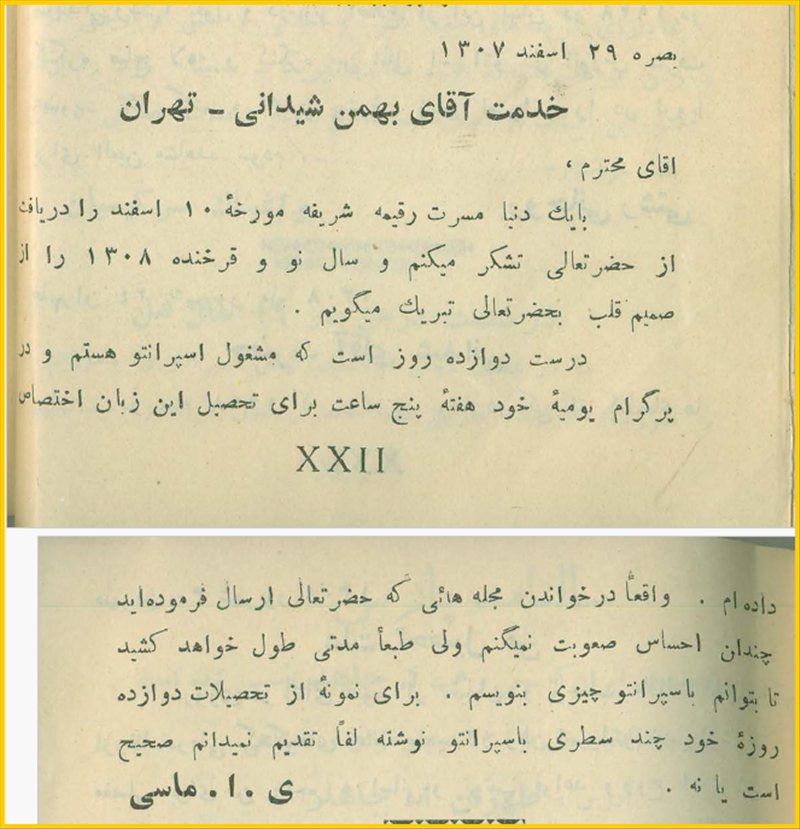 بصره ۲۹ اسفند ۱۳۰۷
خدمت آقای بهمن شیدانی - تهران
اقای محترم ،
بایك دنیا مسرت رقیمه شریفه مورخهٔ ۱۰ اسفند را دریافت
از حضرتعالی تشکر میکنم و سال نو و قرخنده ۱۳۰۸ را از
صمیم قلب بحضرتعالی تبریك میگویم .
درست دوازده روز است که مشغول اسپرانتو هستم و در
پرگرام یومیهٔ خود هفتهٔ پنج ساعت برای تحصیل این زبان اختصاص
XXII
داده‌ام . واقعاً درخواندن مجله هائی که حضرتعالی ارسال فرموده‌اید
چندان احساس صعوبت نمیگنم ولی طبعاً مدتی طول خواهد کشید
تا بتوانم باسپرانتو چیزی بنویسم . برای نمونهٔ از تحصیلات دوازده
روزهٔ خود چند سطری باسپرانتو نوشته لفاً تقدیم نمیدانم صحیح
است یا نه . ی . ا. ماسی